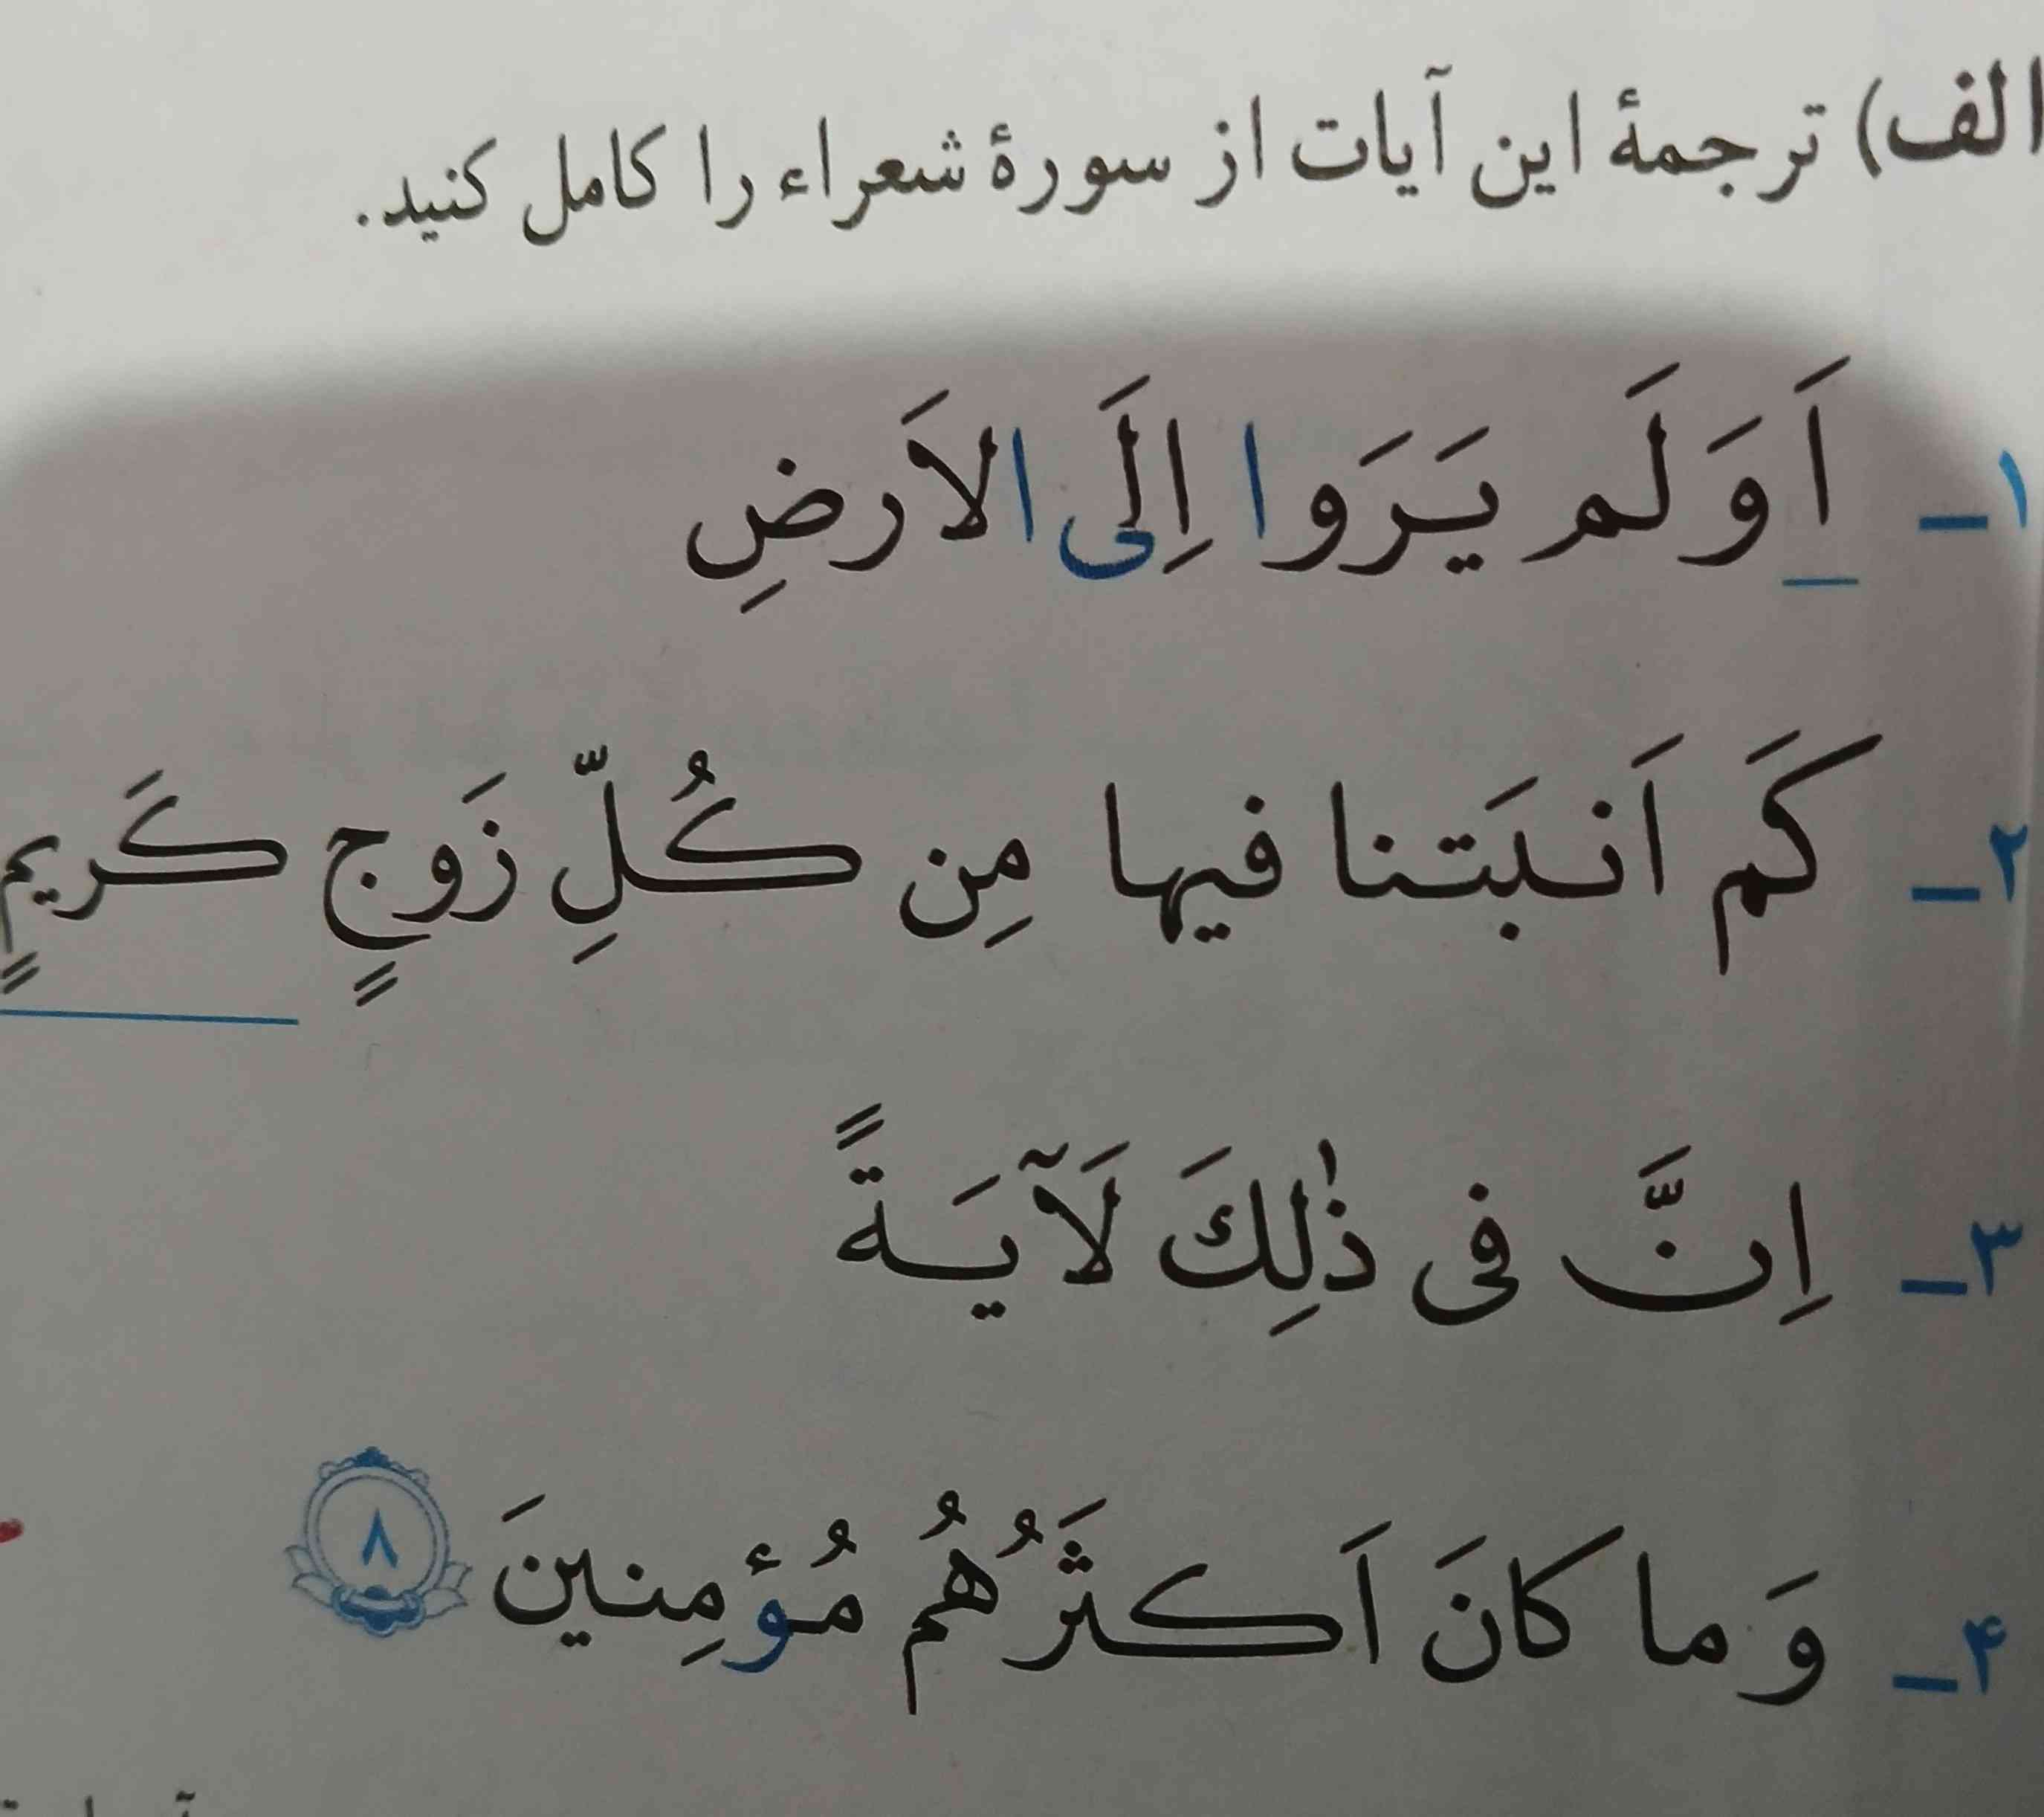 الف) ترجمهٔ این آیات از سورهٔ شعراء را کامل کنید.
۱ـ اَوَلَم يَرَوا اِلَى الاَرضِ
۲ـ كَم اَنبَتنا فيها مِن كُلِّ زَوجٍ كَريمٍ
۳ـ اِنَّ فى ذٰلِكَ لَآيَةً
۴ـ وَ ما كانَ اَكثَرُهُم مُؤمِنينَ ۸